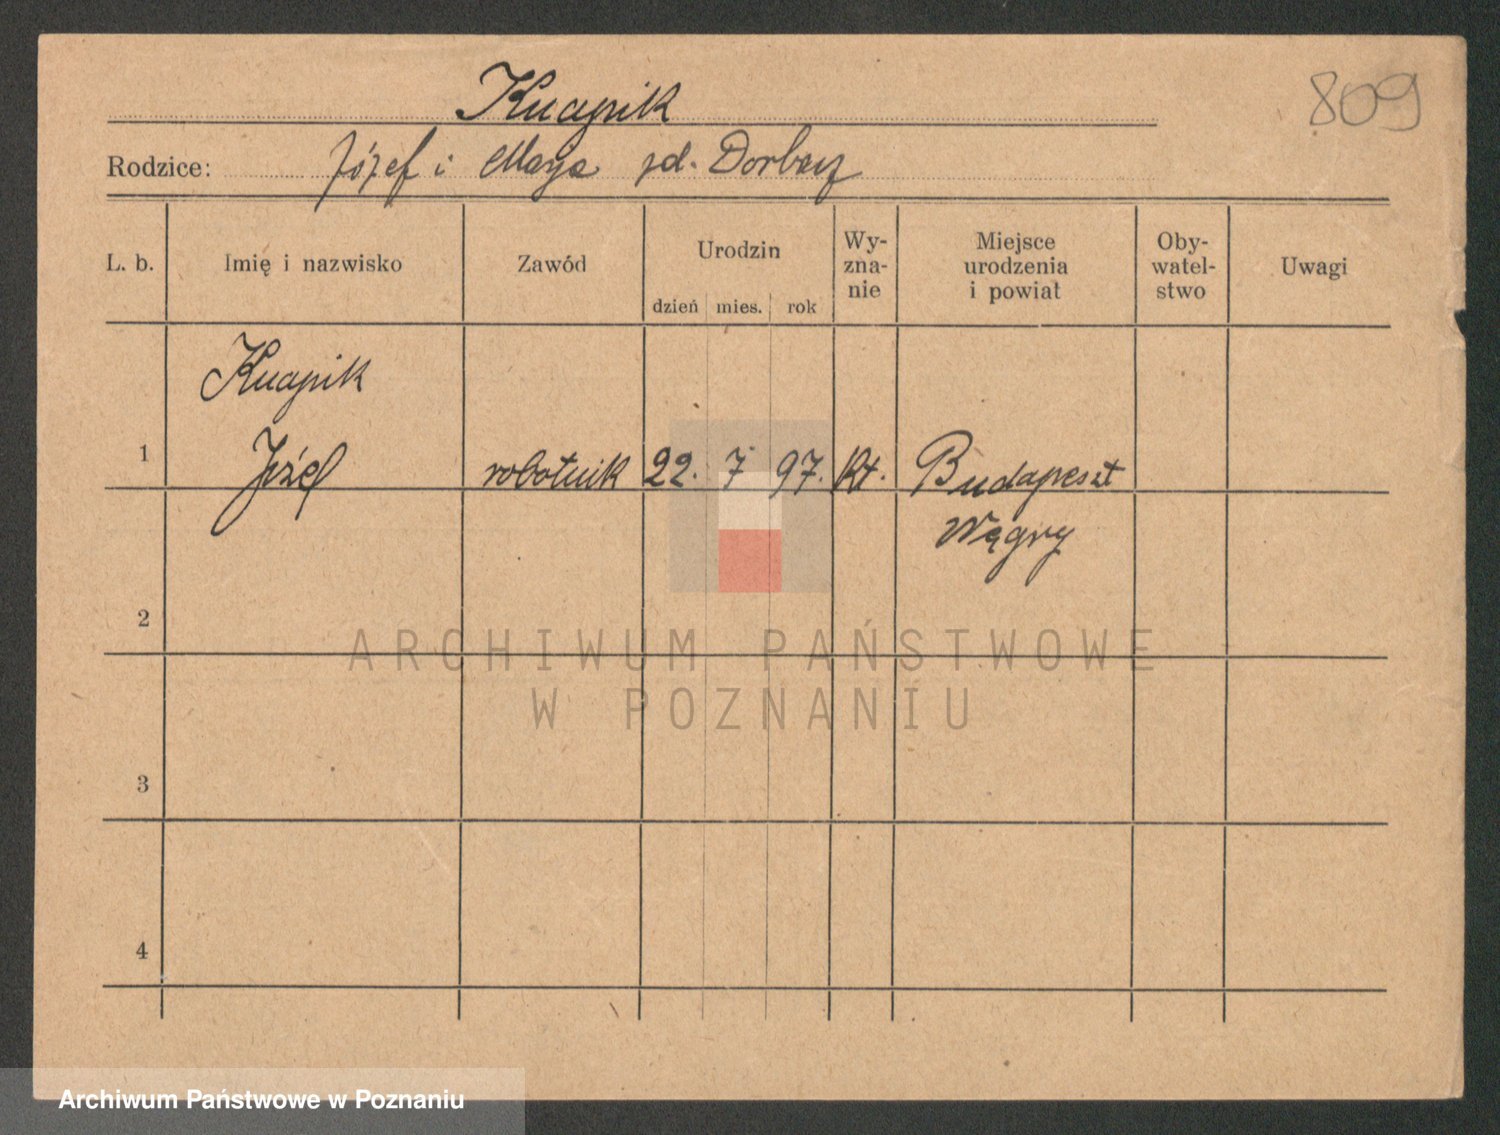 Knapik
809
Rodzice: Józef i Marya zd.
L. b. Imię i nazwisko Zawód Urodzin dzień mies. rok Wy-zna-nie Miejsce urodzenia i powiat Oby-watel-stwo Uwagi
Knapik
1 Józef robotnik 22. 7 97. kt. Budapeszt
Węgry
2
ARCHIWUM PAŃSTWOWE
W POZNANIU
3
4
Archiwum Państwowe w Poznaniu